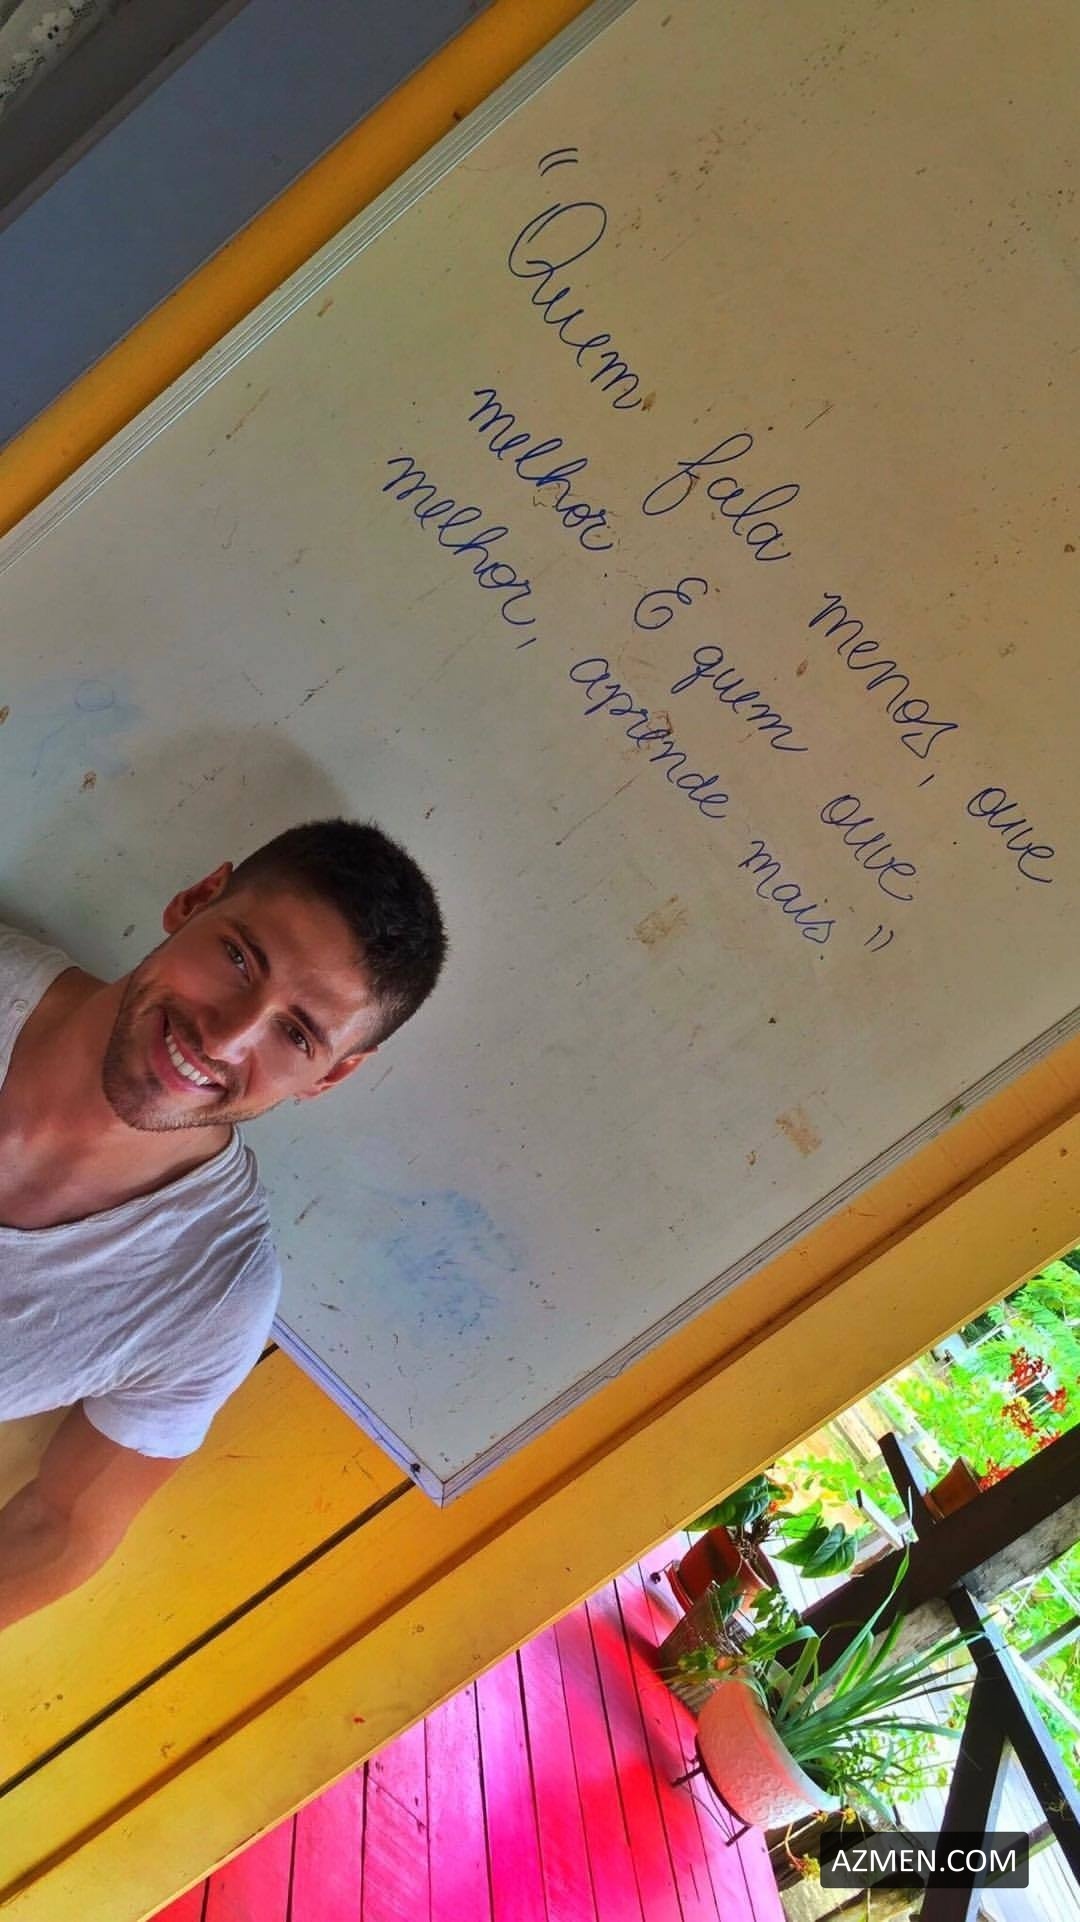 "Quem fala menos, ouve
melhor. E quem ouve
melhor, aprende mais."
AZMEN.COM